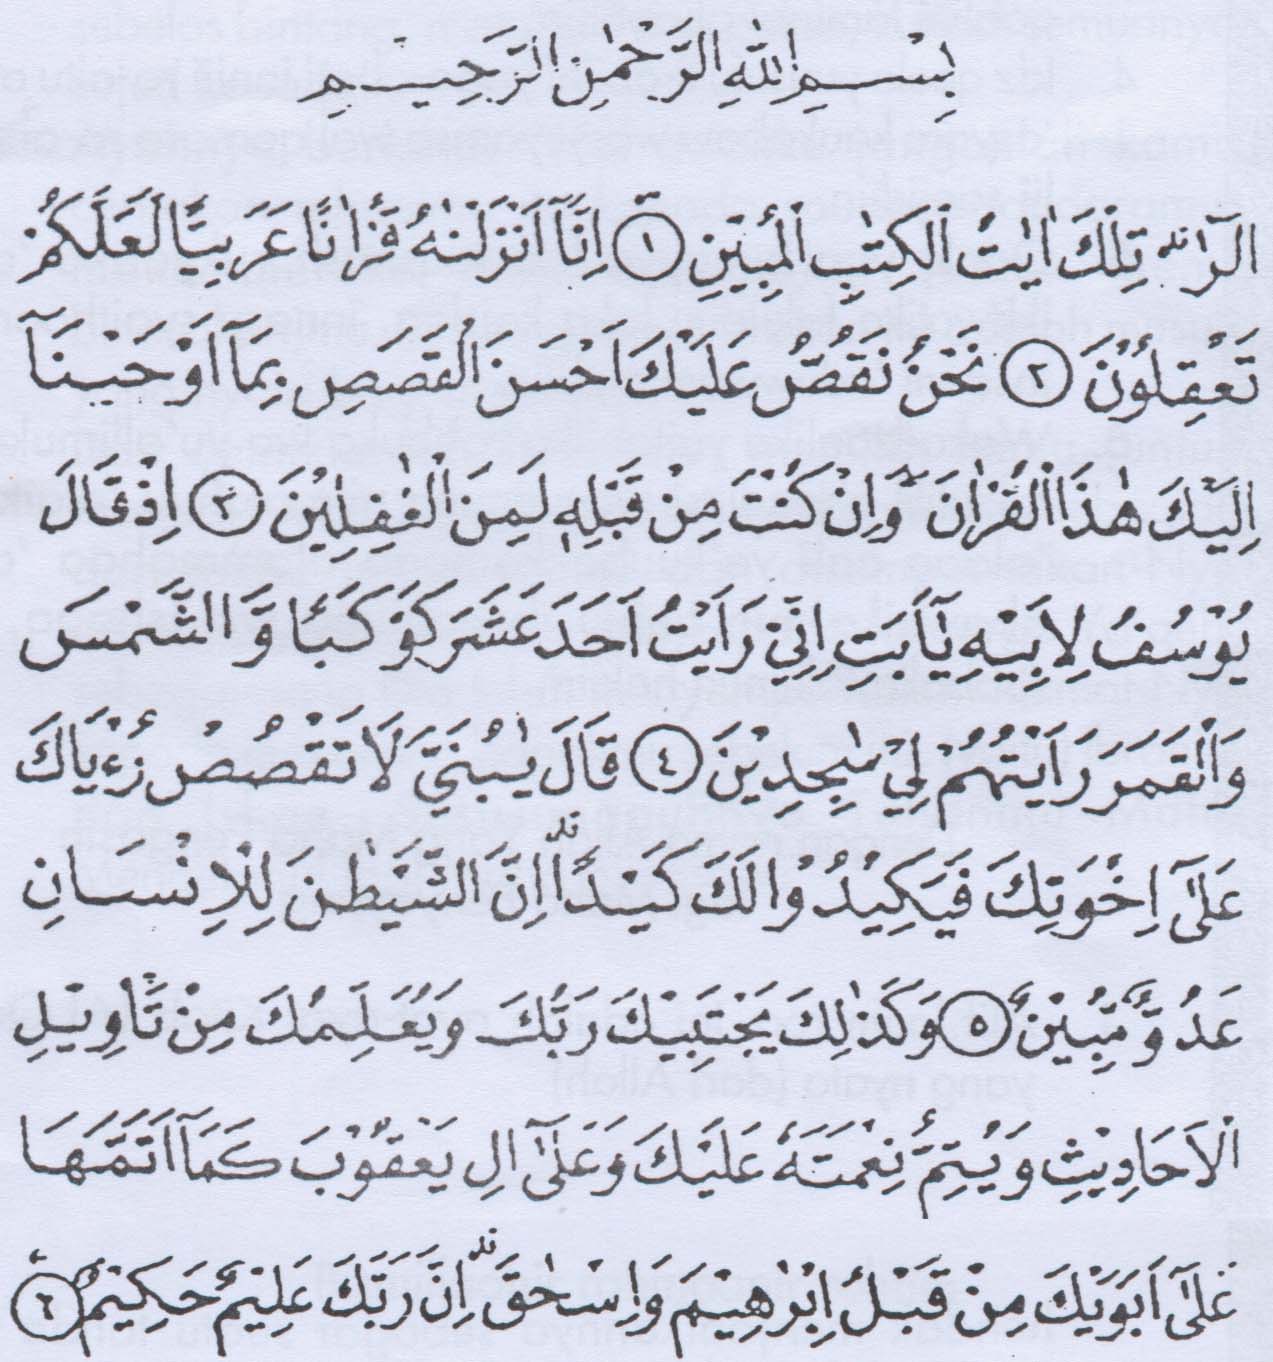 بِسْمِ اللّٰهِ الرَّحْمٰنِ الرَّحِيْمِ
الۤرٰ ۗ تِلْكَ اٰيٰتُ الْكِتٰبِ الْمُبِيْنِ ۝١ اِنَّآ اَنْزَلْنٰهُ قُرْاٰنًا عَرَبِيًّا لَعَلَّكُمْ
تَعْقِلُوْنَ ۝٢ نَحْنُ نَقُصُّ عَلَيْكَ اَحْسَنَ الْقَصَصِ بِمَآ اَوْحَيْنَآ
اِلَيْكَ هٰذَا الْقُرْاٰنَ ۖ وَاِنْ كُنْتَ مِنْ قَبْلِهٖ لَمِنَ الْغٰفِلِيْنَ ۝٣ اِذْ قَالَ
يُوْسُفُ لِاَبِيْهِ يٰٓاَبَتِ اِنِّيْ رَاَيْتُ اَحَدَ عَشَرَ كَوْكَبًا وَّالشَّمْسَ
وَالْقَمَرَ رَاَيْتُهُمْ لِيْ سٰجِدِيْنَ ۝٤ قَالَ يٰبُنَيَّ لَا تَقْصُصْ رُءْيَاكَ
عَلٰٓى اِخْوَتِكَ فَيَكِيْدُوْا لَكَ كَيْدًا ۗ اِنَّ الشَّيْطٰنَ لِلْاِنْسَانِ
عَدُوٌّ مُّبِيْنٌ ۝٥ وَكَذٰلِكَ يَجْتَبِيْكَ رَبُّكَ وَيُعَلِّمُكَ مِنْ تَأْوِيْلِ
الْاَحَادِيْثِ وَيُتِمُّ نِعْمَتَهٗ عَلَيْكَ وَعَلٰٓى اٰلِ يَعْقُوْبَ كَمَآ اَتَمَّهَا
عَلٰٓى اَبَوَيْكَ مِنْ قَبْلُ اِبْرٰهِيْمَ وَاِسْحٰقَ ۗ اِنَّ رَبَّكَ عَلِيْمٌ حَكِيْمٌ ۝٦